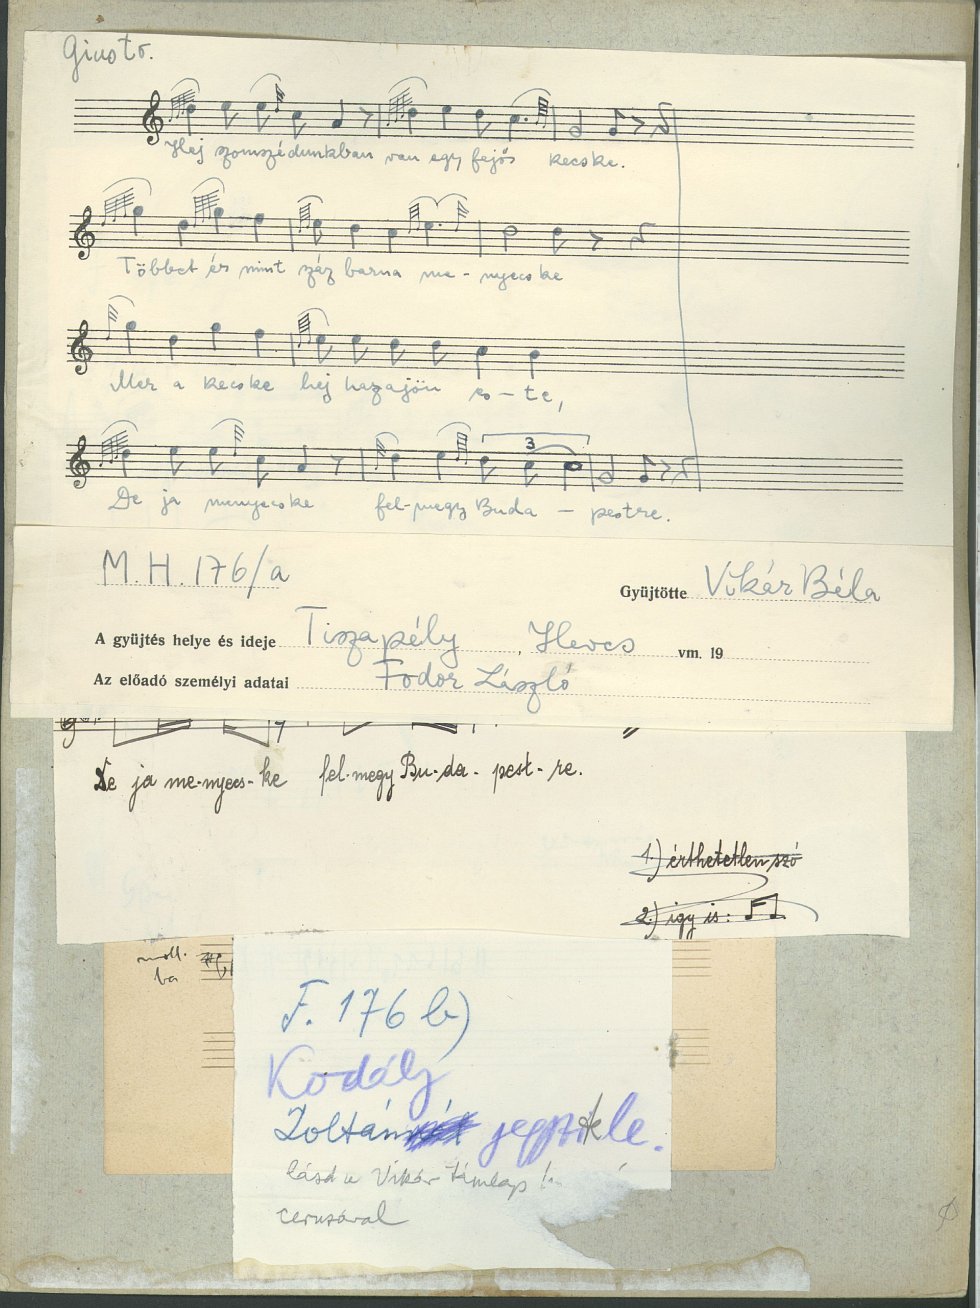 Giusto.
Hej szomszédunkban van egy fejős kecske.
Többet ér mint száz barna me - nyecske
Mer a kecske hej hazajön es - te,
3
De ja menyecske fel-megy Buda - pestre.
M. H. 176/a
Gyüjtötte Vikár Béla
A gyüjtés helye és ideje Tiszapély, Heves vm. 19
Az előadó személyi adatai Fodor László
De ja me-nyecs-ke fel-megy Bu-da- pest- re.
1.) érthetetlen szó
2.) igy is:
moll.
ba
F. 176 b)
Kodály
Zoltán le.
lásd a Vikár támlap
ceruzával